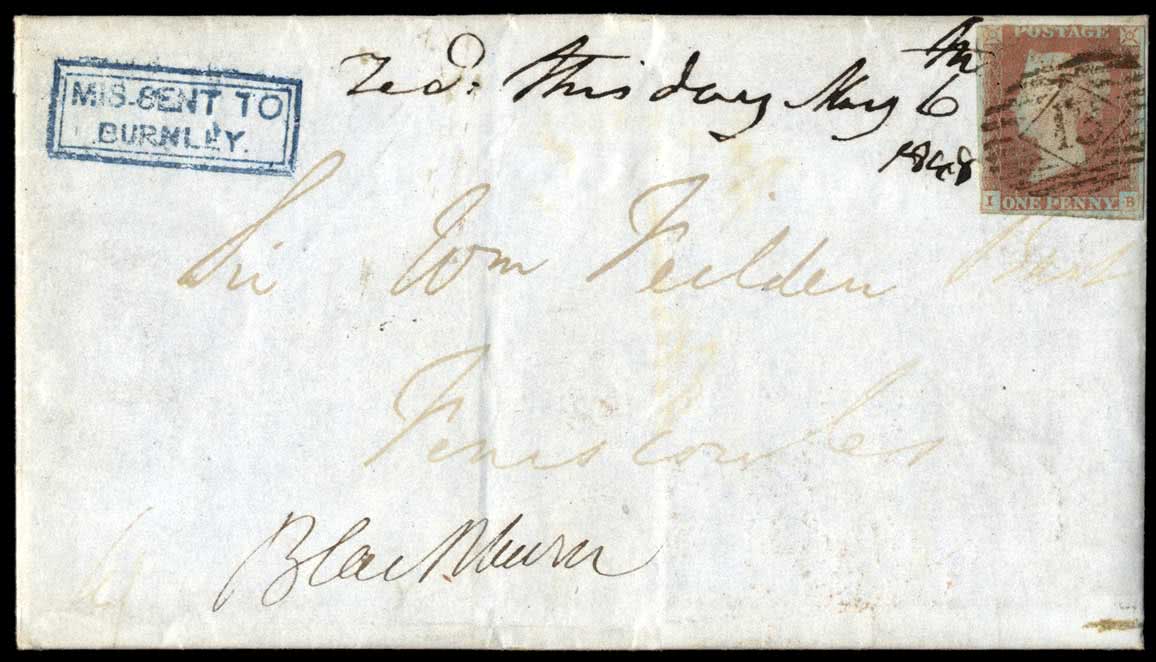 MIS-SENT TO
BURNLEY.
recd. this day May 6th
1848
POSTAGE
ONE PENNY
I B
Sir Wm Feilden Bart
Feniscowles
Blackburn